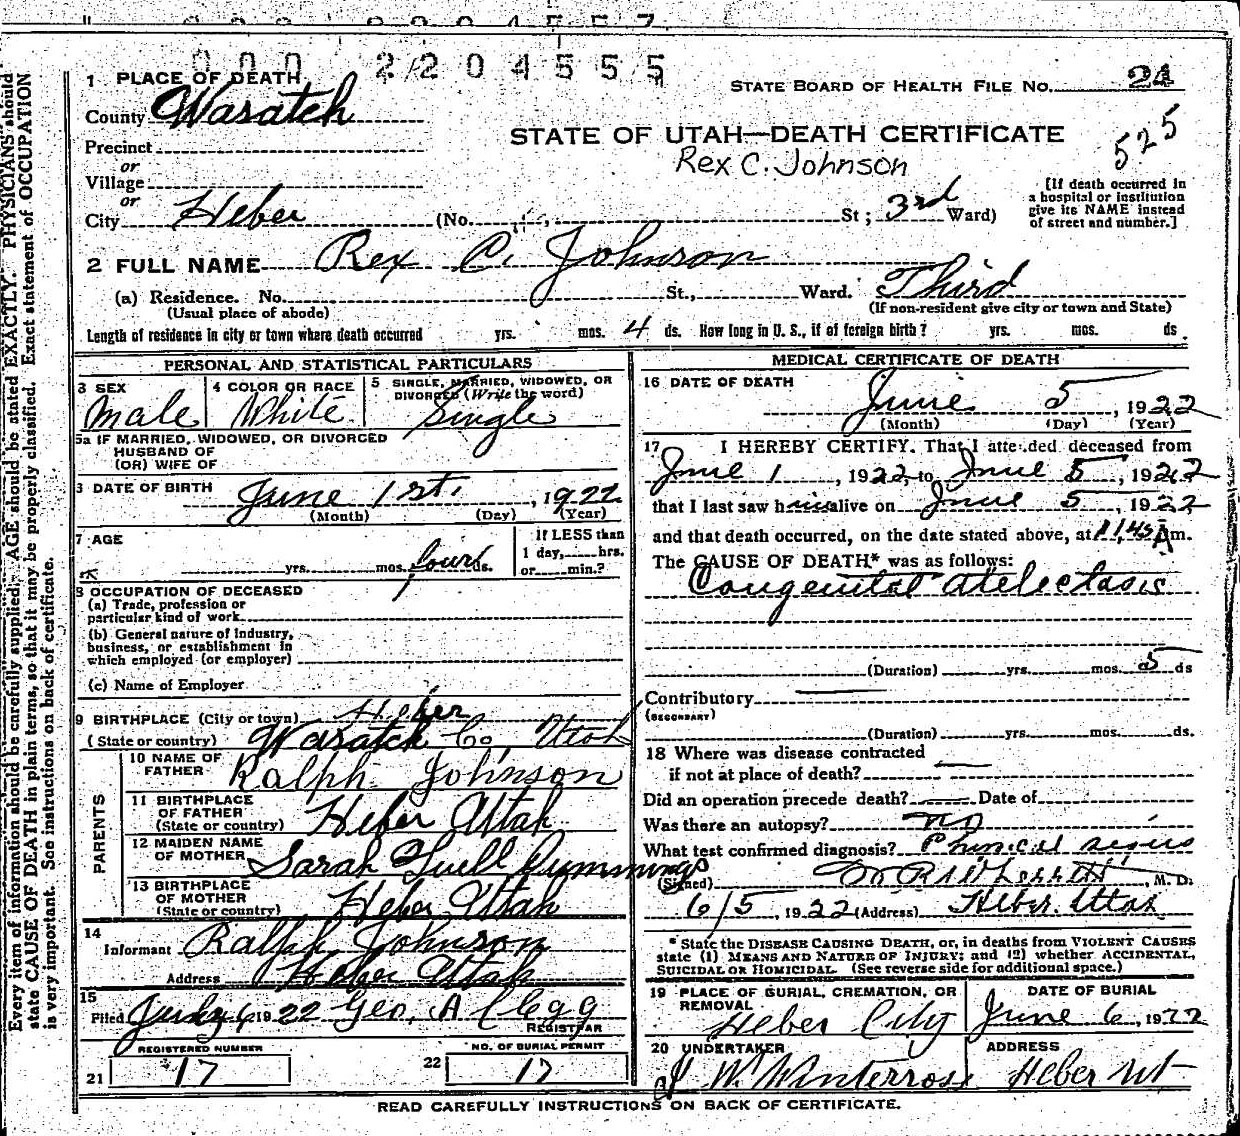 000 2204555
1 PLACE OF DEATH
STATE BOARD OF HEALTH FILE No. 24
County Wasatch
STATE OF UTAH—DEATH CERTIFICATE
525
Precinct
Rex C. Johnson
or
Village
or
City Heber (No. St; 3rd Ward)
[If death occurred in a hospital or institution give its NAME instead of street and number.]
2 FULL NAME Rex C. Johnson
(a) Residence. No. St., Ward. Third
(Usual place of abode) (If non-resident give city or town and State)
Length of residence in city or town where death occurred yrs. mos. 4 ds. How long in U. S., if of foreign birth? yrs. mos. ds
PERSONAL AND STATISTICAL PARTICULARS
3 SEX Male
4 COLOR OR RACE White
5 SINGLE, MARRIED, WIDOWED, OR DIVORCED (Write the word) Single
5a IF MARRIED, WIDOWED, OR DIVORCED
HUSBAND OF
(OR) WIFE OF
DATE OF BIRTH June 1st, 1922
(Month) (Day) (Year)
7 AGE yrs. mos. four ds.
If LESS than
1 day, hrs.
or min.?
8 OCCUPATION OF DECEASED
(a) Trade, profession or
particular kind of work
(b) General nature of industry,
business, or establishment in
which employed (or employer)
(c) Name of Employer
9 BIRTHPLACE (City or town) Heber
(State or country) Wasatch Co, Utah
PARENTS
10 NAME OF FATHER Ralph Johnson
11 BIRTHPLACE OF FATHER (State or country) Heber Utah
12 MAIDEN NAME OF MOTHER Sarah Cummings
13 BIRTHPLACE OF MOTHER (State or country) Heber Utah
14 Informant Ralph Johnson
Address Heber Utah
15 Filed 6 1922 Geo. A Clegg
REGISTRAR
21 REGISTERED NUMBER 17
22 NO. OF BURIAL PERMIT 17
MEDICAL CERTIFICATE OF DEATH
16 DATE OF DEATH
June 5, 1922
(Month) (Day) (Year)
17 I HEREBY CERTIFY. That I attended deceased from
June 1, 1922, to June 5, 1922
that I last saw him alive on June 5, 1922
and that death occurred, on the date stated above, at 1145 Am.
The CAUSE OF DEATH* was as follows:
Congenital atelectasis
(Duration) yrs. mos. 5 ds
Contributory
(SECONDARY)
(Duration) yrs. mos. ds.
18 Where was disease contracted
if not at place of death?
Did an operation precede death? Date of
Was there an autopsy? no
What test confirmed diagnosis? Physical signs
(Signed) , M. D.
6/5, 1922 (Address) Heber. Utah
* State the DISEASE CAUSING DEATH, or, in deaths from VIOLENT CAUSES
state (1) MEANS AND NATURE OF INJURY; and (2) whether ACCIDENTAL,
SUICIDAL OR HOMICIDAL. (See reverse side for additional space.)
19 PLACE OF BURIAL, CREMATION, OR REMOVAL Heber City
DATE OF BURIAL June 6, 1922
20 UNDERTAKER J W. Winterrose
ADDRESS Heber Ut
READ CAREFULLY INSTRUCTIONS ON BACK OF CERTIFICATE.
Every item of information should be carefully supplied. AGE should be stated EXACTLY. PHYSICIANS should
state CAUSE OF DEATH in plain terms, so that it may be properly classified. Exact statement of OCCUPATION
is very important. See instructions on back of certificate.